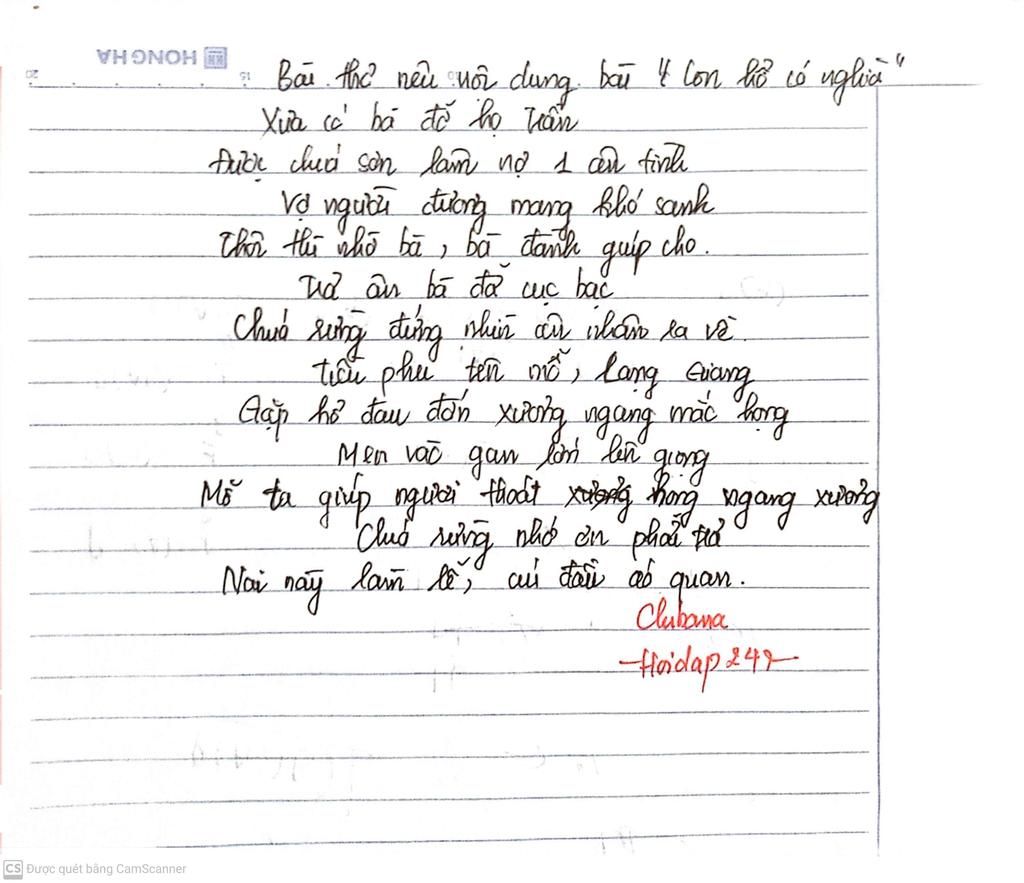 HONG HA
20 15 10
Bài thơ nêu nội dung bài "Con hổ có nghĩa"
Xưa có bà đỡ họ Trần
Được chúa sơn lâm nợ 1 ân tình
Vợ người đương mang khó sanh
Thôi thì nhờ bà, bà đành giúp cho.
Trả ân bà đã cục bạc
Chúa rừng đứng nhìn ân nhân ra về.
Tiều phu tên mỗ, Lạng Giang
Gặp hổ đau đớn xương ngang mắc họng
Men vào gan lớn lên giọng
Mỗ ta giúp người thoát xương họng ngang xương
Chúa rừng nhớ ơn phải trả
Nai này làm lễ, cúi đầu áo quan.
Clubana
-Hoidap247-
CS Được quét bằng CamScanner